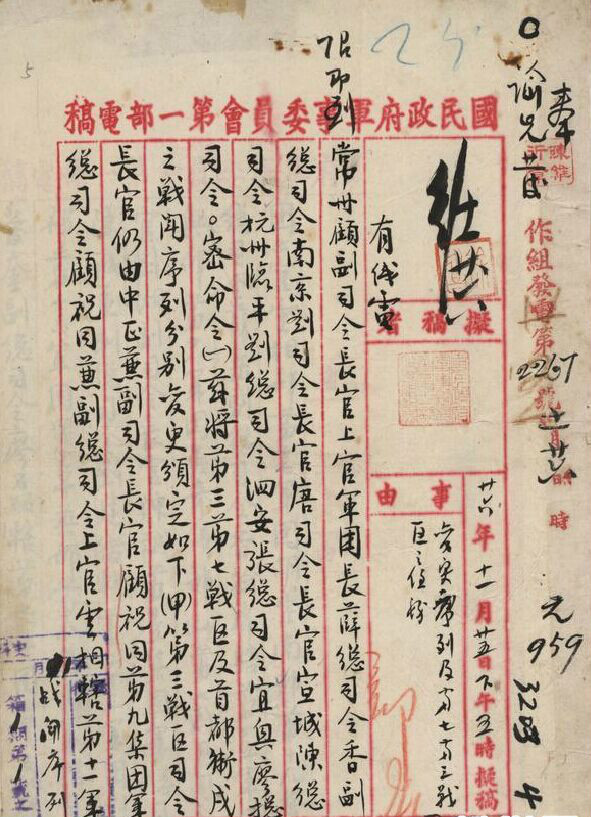 奉
諭兄
作組發電第2267號
元
959
3283 4
國民政府軍事委員會第一部電稿
擬稿者
事由
廿六年十一月廿五日下午五時擬稿
變更序列及第七第三戰
區之任務
即到
常州顧副司令長官上官軍團長薛總司令香副
總司令南京劉司令長官唐司令長官宣城陳總
司令杭州臨平劉總司令泗安張總司令宜興廖總
司令。密命令(一)茲將第三第七戰區及首都衛戍
之戰鬥序列分別變更頒定如下(甲)第三戰區司令
長官仍由中正兼副司令長官顧祝同第九集團軍
總司令顧祝同兼副總司令上官雲相轄第十一軍
戰鬥序列